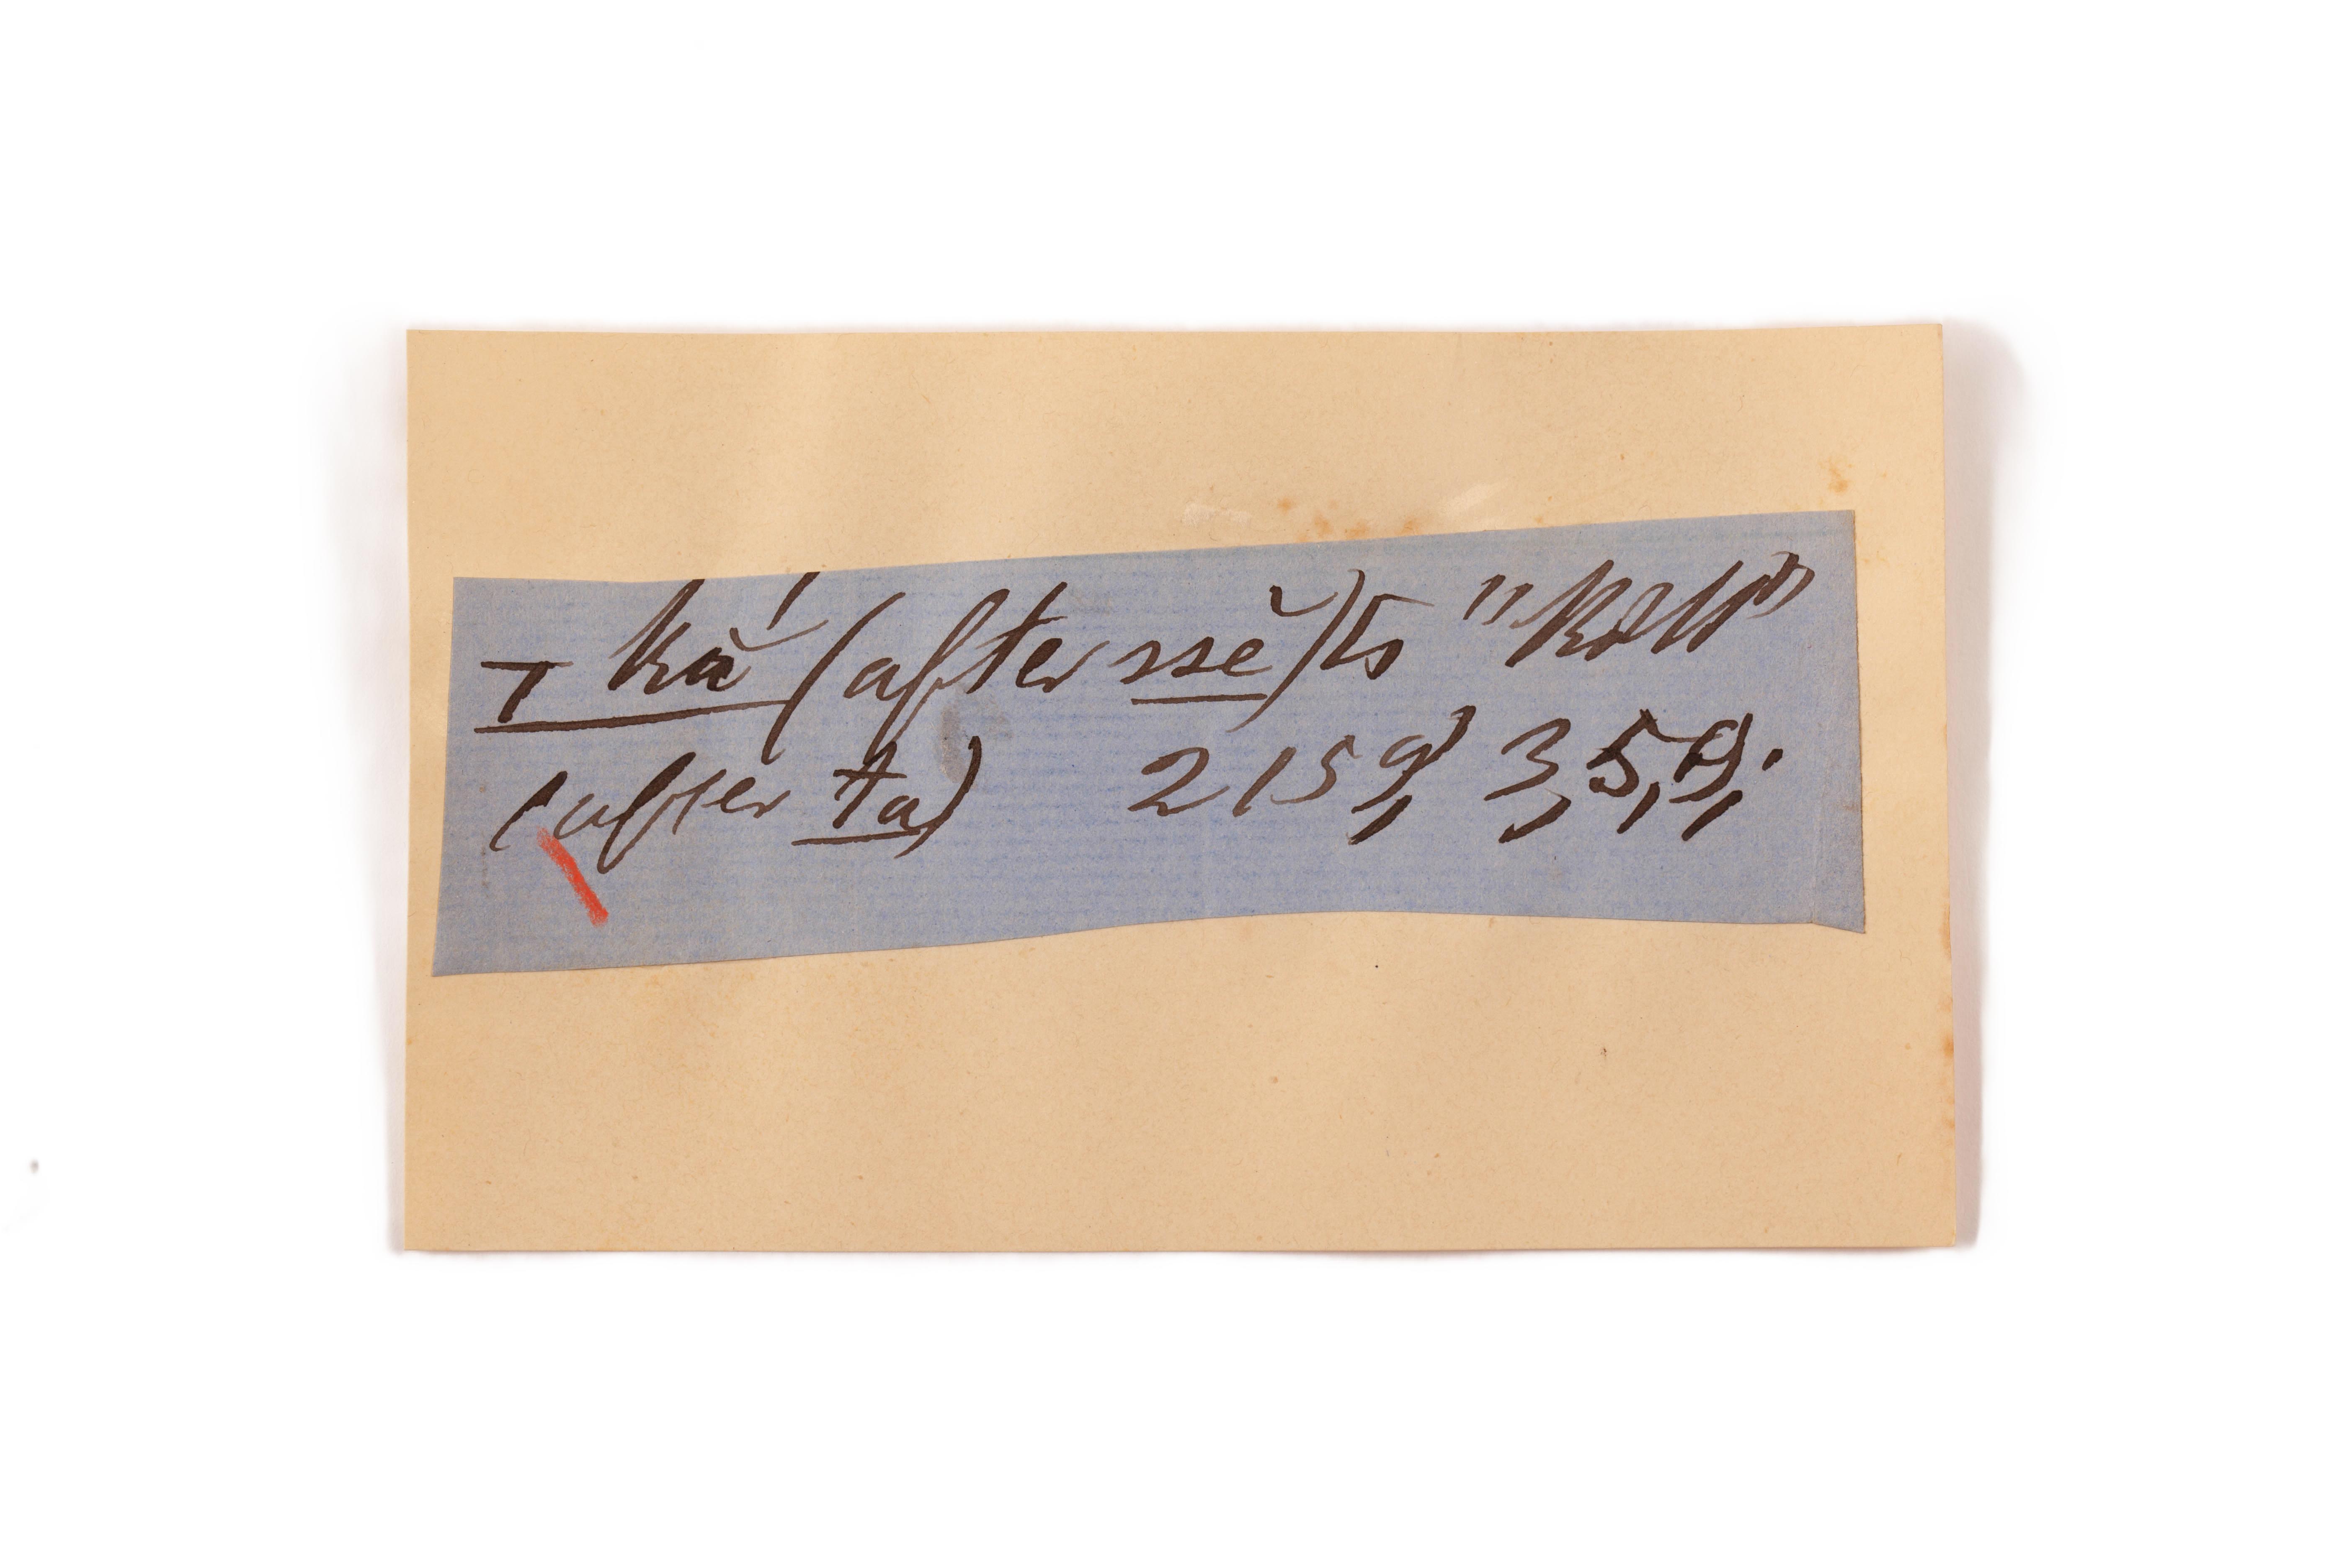 T kă' (after ssĕ) to "Koll"
(after ta) 2159, 3, 5, 9,.